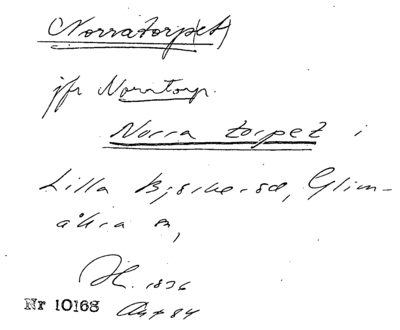 Norratorp(et)
jfr Norratorp.
Norra torpet i
Lilla Bjerkeröd, Glim-
åkra sn,
Hl. 1836
Nr 10168 Avt 84